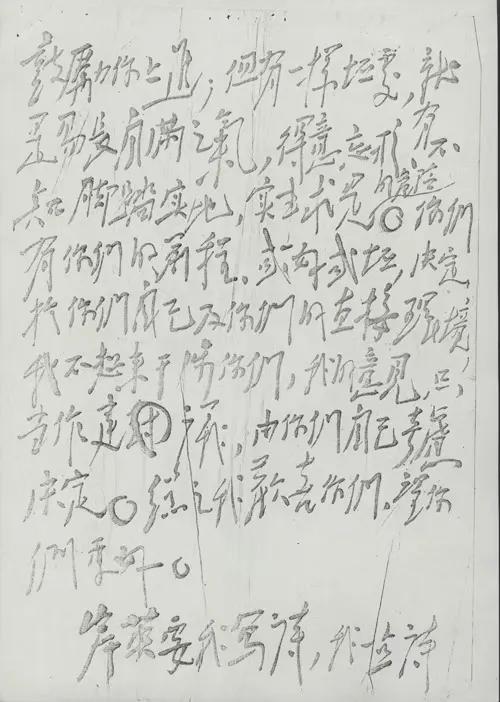 鼓勵你上進;但有一样坏處,就
是易長自满之氣,得意忘形,有不
知脚踏实地,实事求是的危险。你們
有你們的前程,或好或坏,决定
於你們自己及你們的直接環境,
我不想来干涉你們,我的意見,只
当作建議,由你們自己考慮
决定。總之我歡喜你們,望你
們更好。
岸英要我写詩,我一点詩